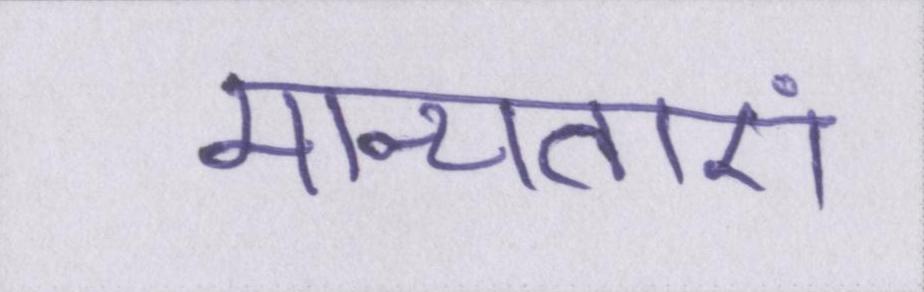 मान्यताएं